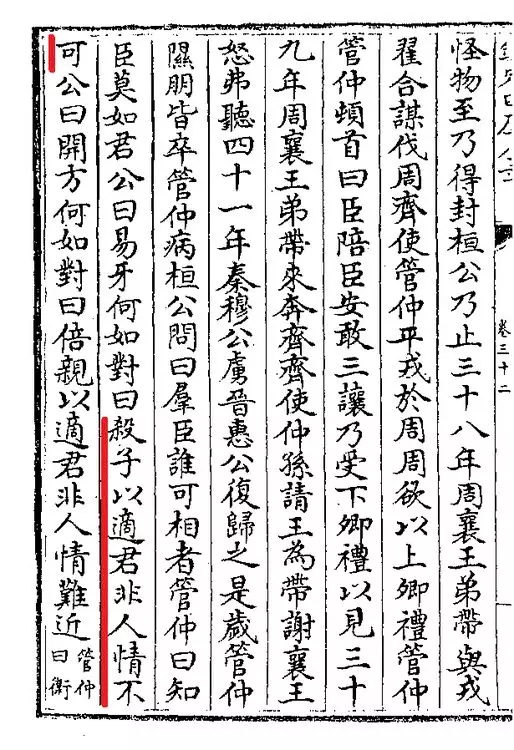 卷三十二
怪物至乃得封桓公乃止三十八年周襄王弟帶與戎
翟合謀伐周齊使管仲平戎於周周欲以上卿禮管仲
管仲頓首曰臣陪臣安敢三讓乃受下卿禮以見三十
九年周襄王弟帶來奔齊齊使仲孫請王為帶謝襄王
怒弗聽四十一年秦穆公虜晉惠公復歸之是歲管仲
隰朋皆卒管仲病桓公問曰羣臣誰可相者管仲曰知
臣莫如君公曰易牙何如對曰殺子以適君非人情不
可公曰開方何如對曰倍親以適君非人情難近管仲曰衛